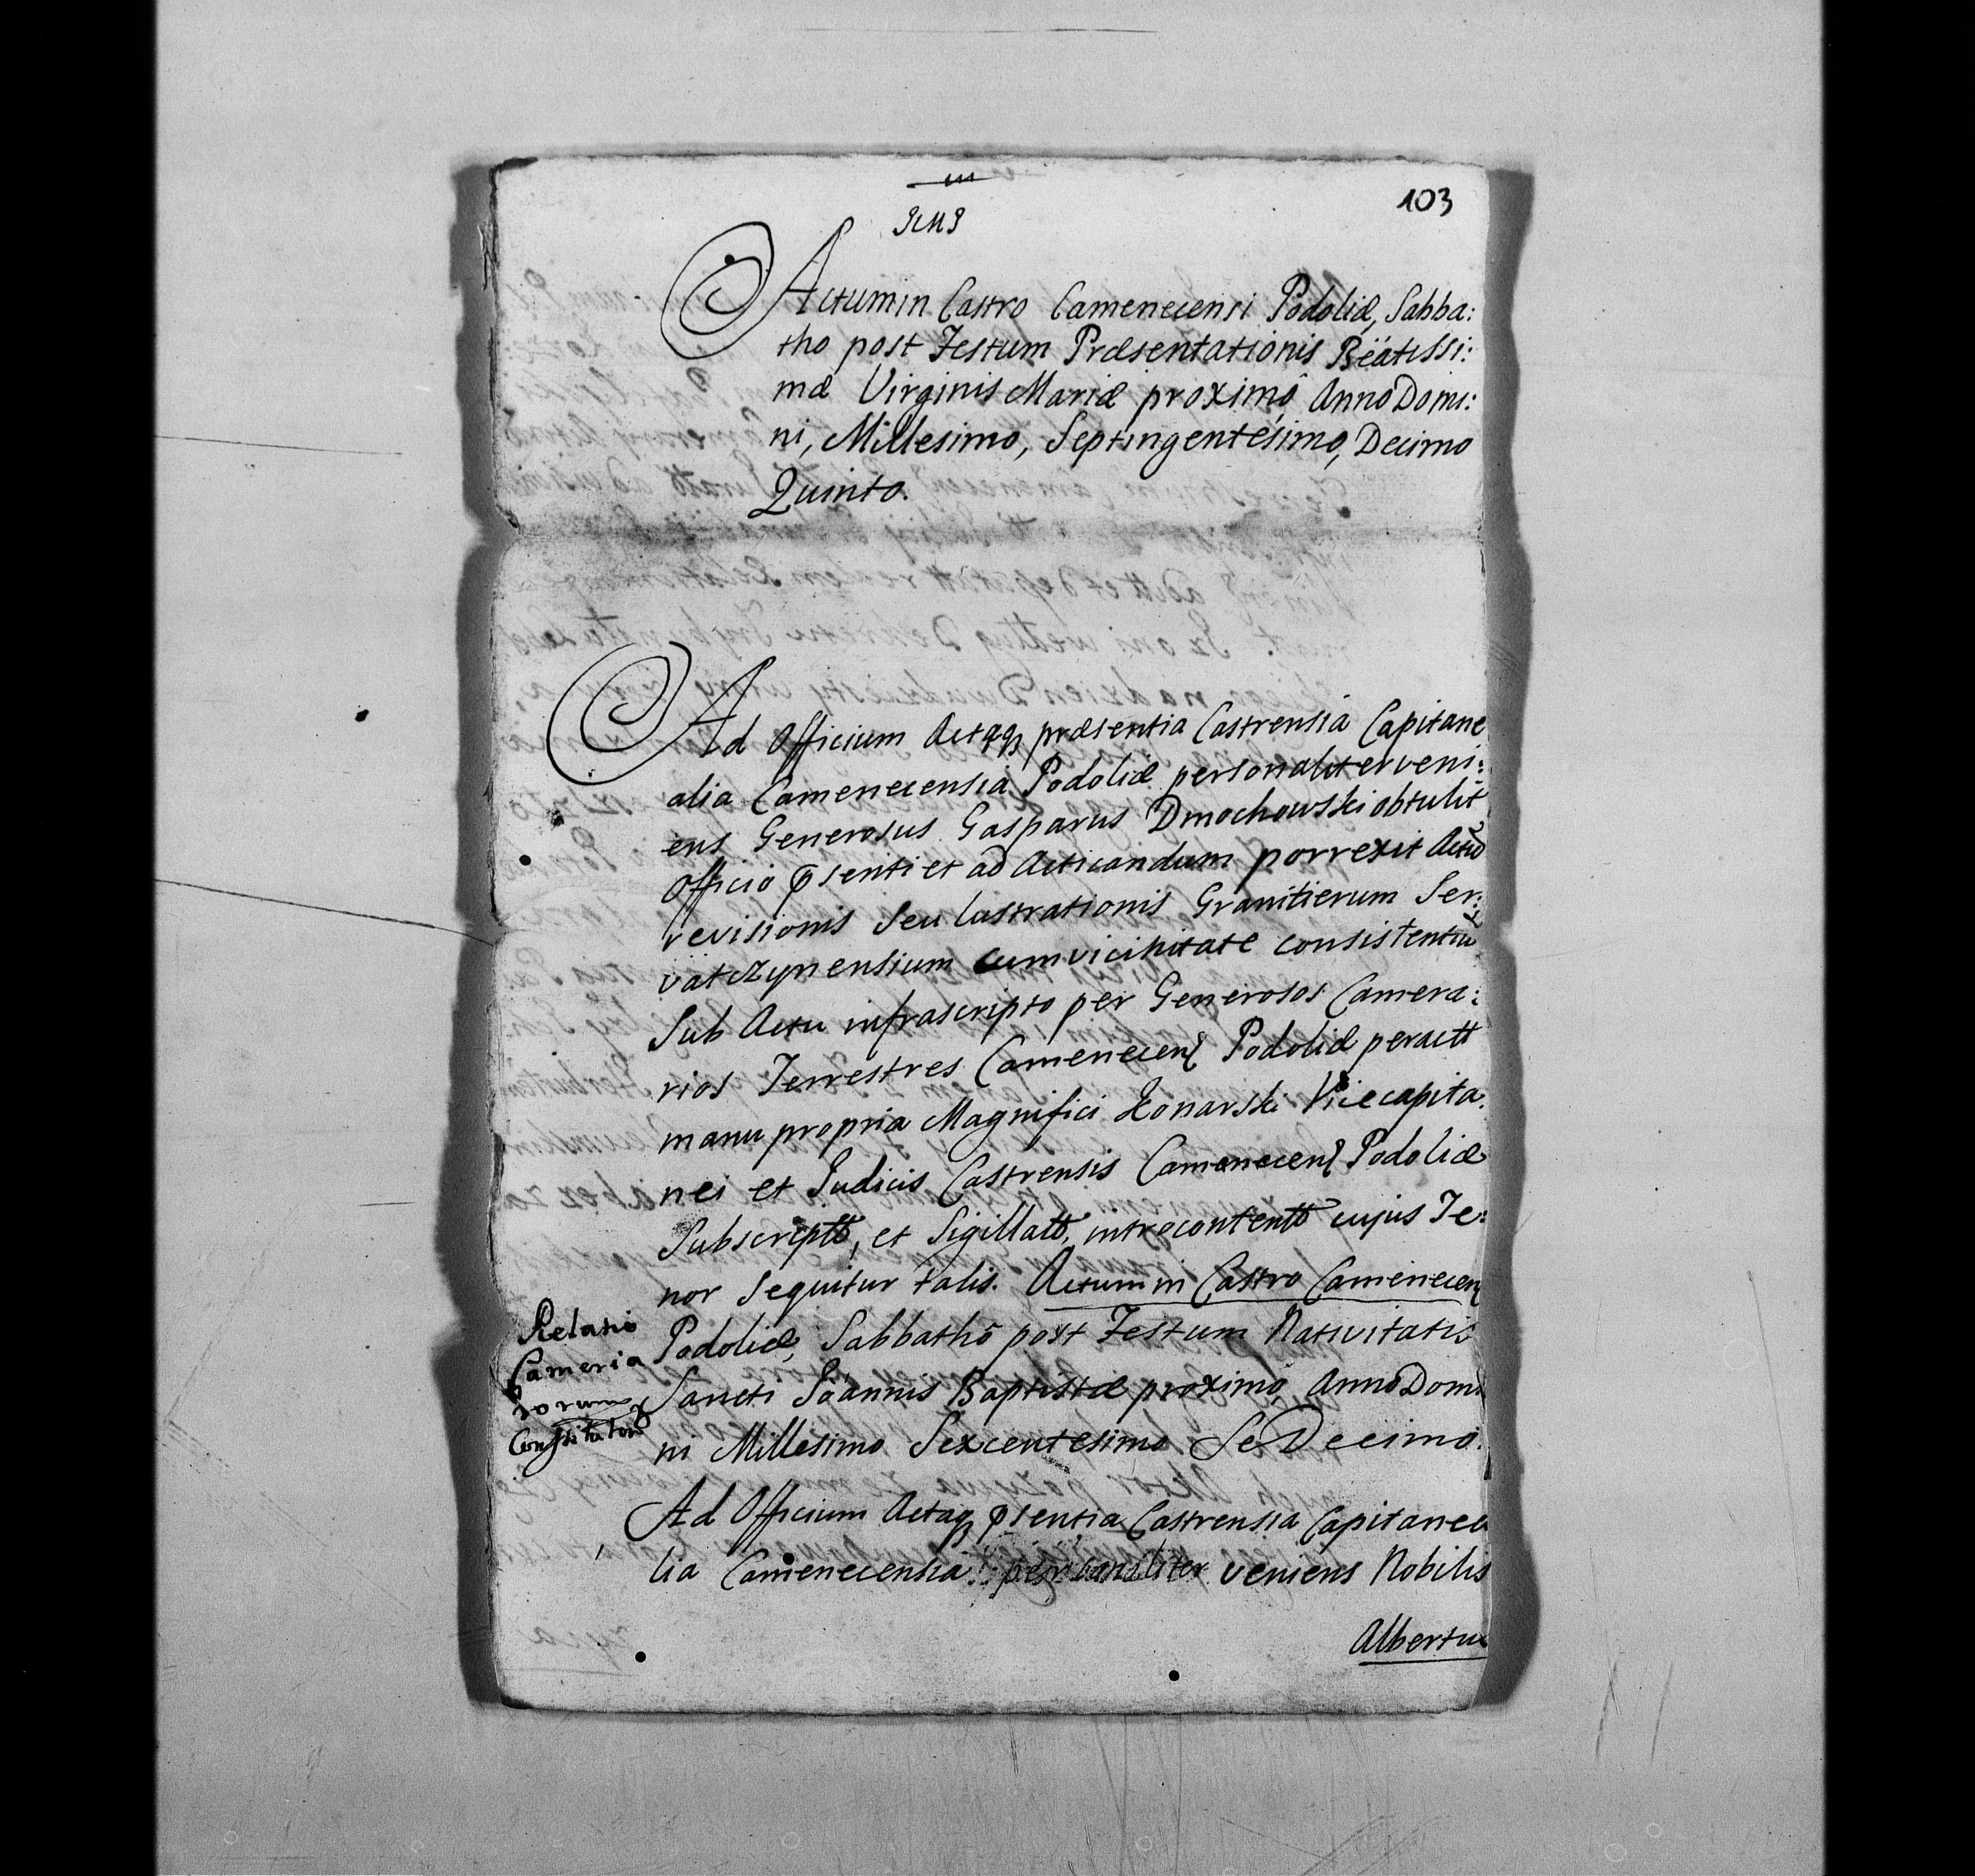 103
Actum in Castro Camenecensi Podoliæ, Sabba:
tho post Festum Præsentationis Beätissi:
mæ Virginis Mariæ proximô Anno Domi:
ni, Millesimo, Septingentésimo, Decimo
Quinto.
Ad Officium Actaqꝫ præsentia Castrensia Capitane
alia Camenecensia Podoliæ personaliter veni:
ens Generosus Gasparus Dmochowski obtulit
Officio pſenti et ad Acticandum porrexit Actu
revisionis Seu lustrationis Granitierum Ser:
vatczynensium cum vicinitate consistentiu
Sub Actu infrascripto per Generosos Camera:
rios Terrestres Camenecen Podoliæ peractt
manu propria Magnifici Konarski Vicecapita:
nei et Judicis Castrensis Camenecen Podoliæ
Subscriptt, et Sigillatt, introcontentt cujus Te:
nor Sequitur talis. Actum in Castro Camenecen
Podoliæ, Sabbathô post Festum Nativitatis
Sancti Joännis Baptistæ proximo, Anno Domi
ni Millesimo Sexcentesimo SeDecimo.
Relatio
Cameria
rorum
Constitutor
Ad Officium Actaqꝫ pſentia Castrensia Capitanea
lia Camenecensia personaliter veniens Nobilis
Albertus